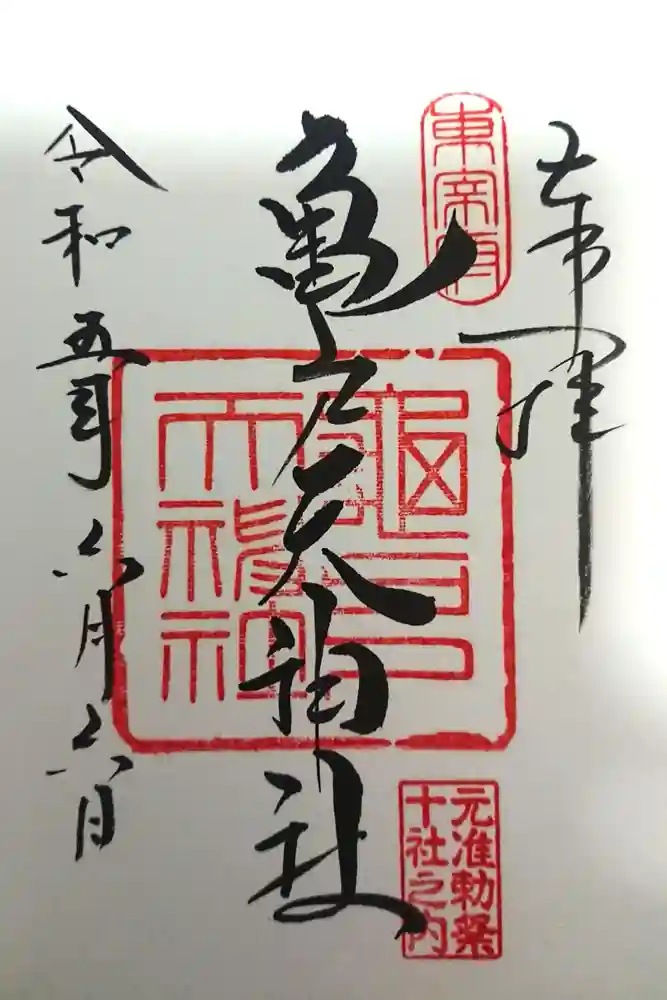 奉拝
東宰府
亀戸天神社
龜戸
天神社
元准勅祭
十社之内
令和五年六月六日